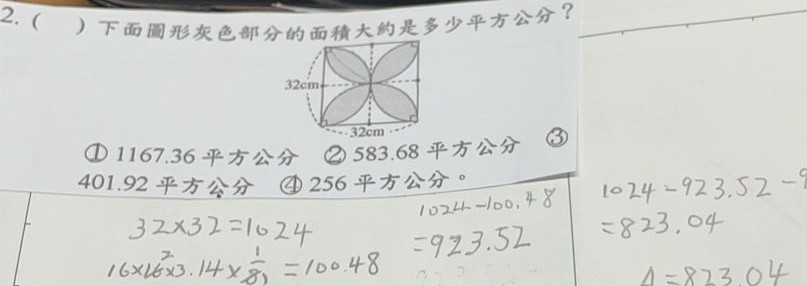 2. (　　) 下面圖形灰色部分的面積大約是多少平方公分？
32cm
32cm
① 1167.36 平方公分　② 583.68 平方公分　③
401.92 平方公分　④ 256 平方公分。
32×32=1024
16×16×3.14×1/8=100.48
1024-100.48
=923.52
1024-923.52-
=823.04
A=823.04